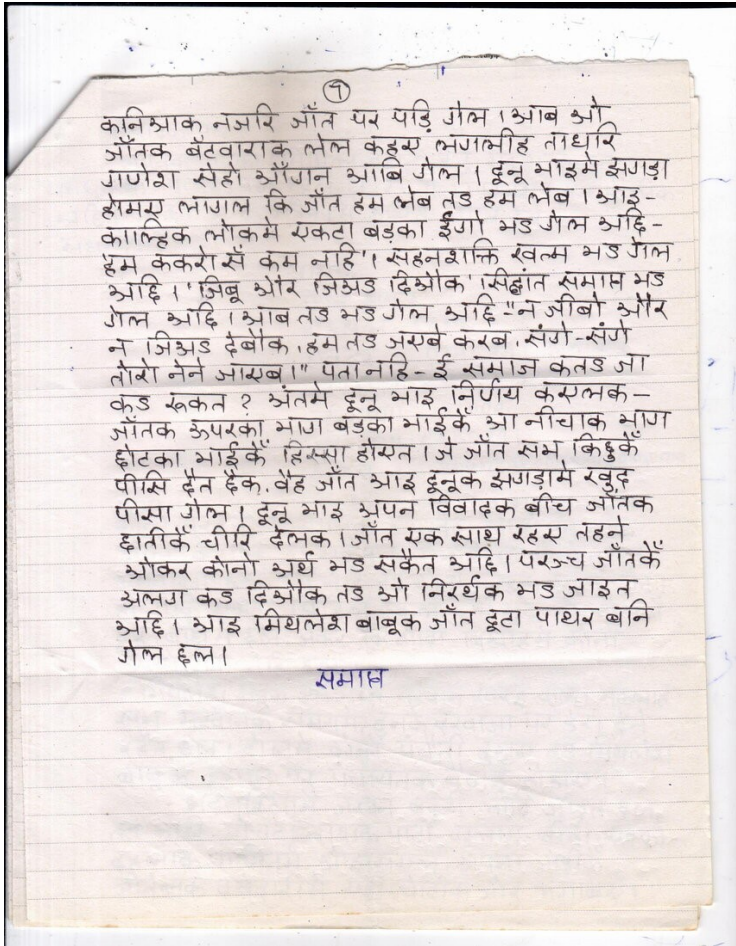 ७
कनिआक नजरि जाँत पर पड़ि गेल । आब ओ
जाँतक बँटवाराक लेल कहए लगलीह ताधरि
गणेश सेहो आँगन आबि गेल । दूनू भाइमे झगड़ा
होमए लागल कि जाँत हम लेब तऽ हम लेब । आइ-
काल्हिक लोकमे एकटा बड़का ईगो भऽ गेल अछि-
हम ककरो सँ कम नहि'। सहनशक्ति खत्म भऽ गेल
अछि । 'जिबू और जिअऽ दिऔक' सिद्धांत समाप्त भऽ
गेल अछि । आब तऽ भऽ गेल अछि-"न जीबो और
न जिअऽ देबौक, हम तऽ जएबे करब, संगे-संगे
तोरो नेने जाएब।" पता नहि- ई समाज कतऽ जा
कऽ रूकत ? अंतमे दूनू भाइ निर्णय कएलक-
जाँतक ऊपरका भाग बड़का भाईकेँ आ नीचाक भाग
छोटका भाईकेँ हिस्सा होएत । जे जाँत सभ किछुकेँ
पीसि दैत छैक, वैह जाँत आइ दूनूक झगड़ामे खुद
पीसा गेल । दूनू भाइ अपन विवादक बीच जाँतक
छातीकेँ चीरि देलक । जाँत एक साथ रहए तहने
ओकर कोनो अर्थ भऽ सकैत अछि । परञ्च जाँतकेँ
अलग कऽ दिऔक तऽ ओ निरर्थक भऽ जाइत
अछि । आइ मिथलेश बाबूक जाँत टूटा पाथर बनि
गेल छल ।
समाप्त